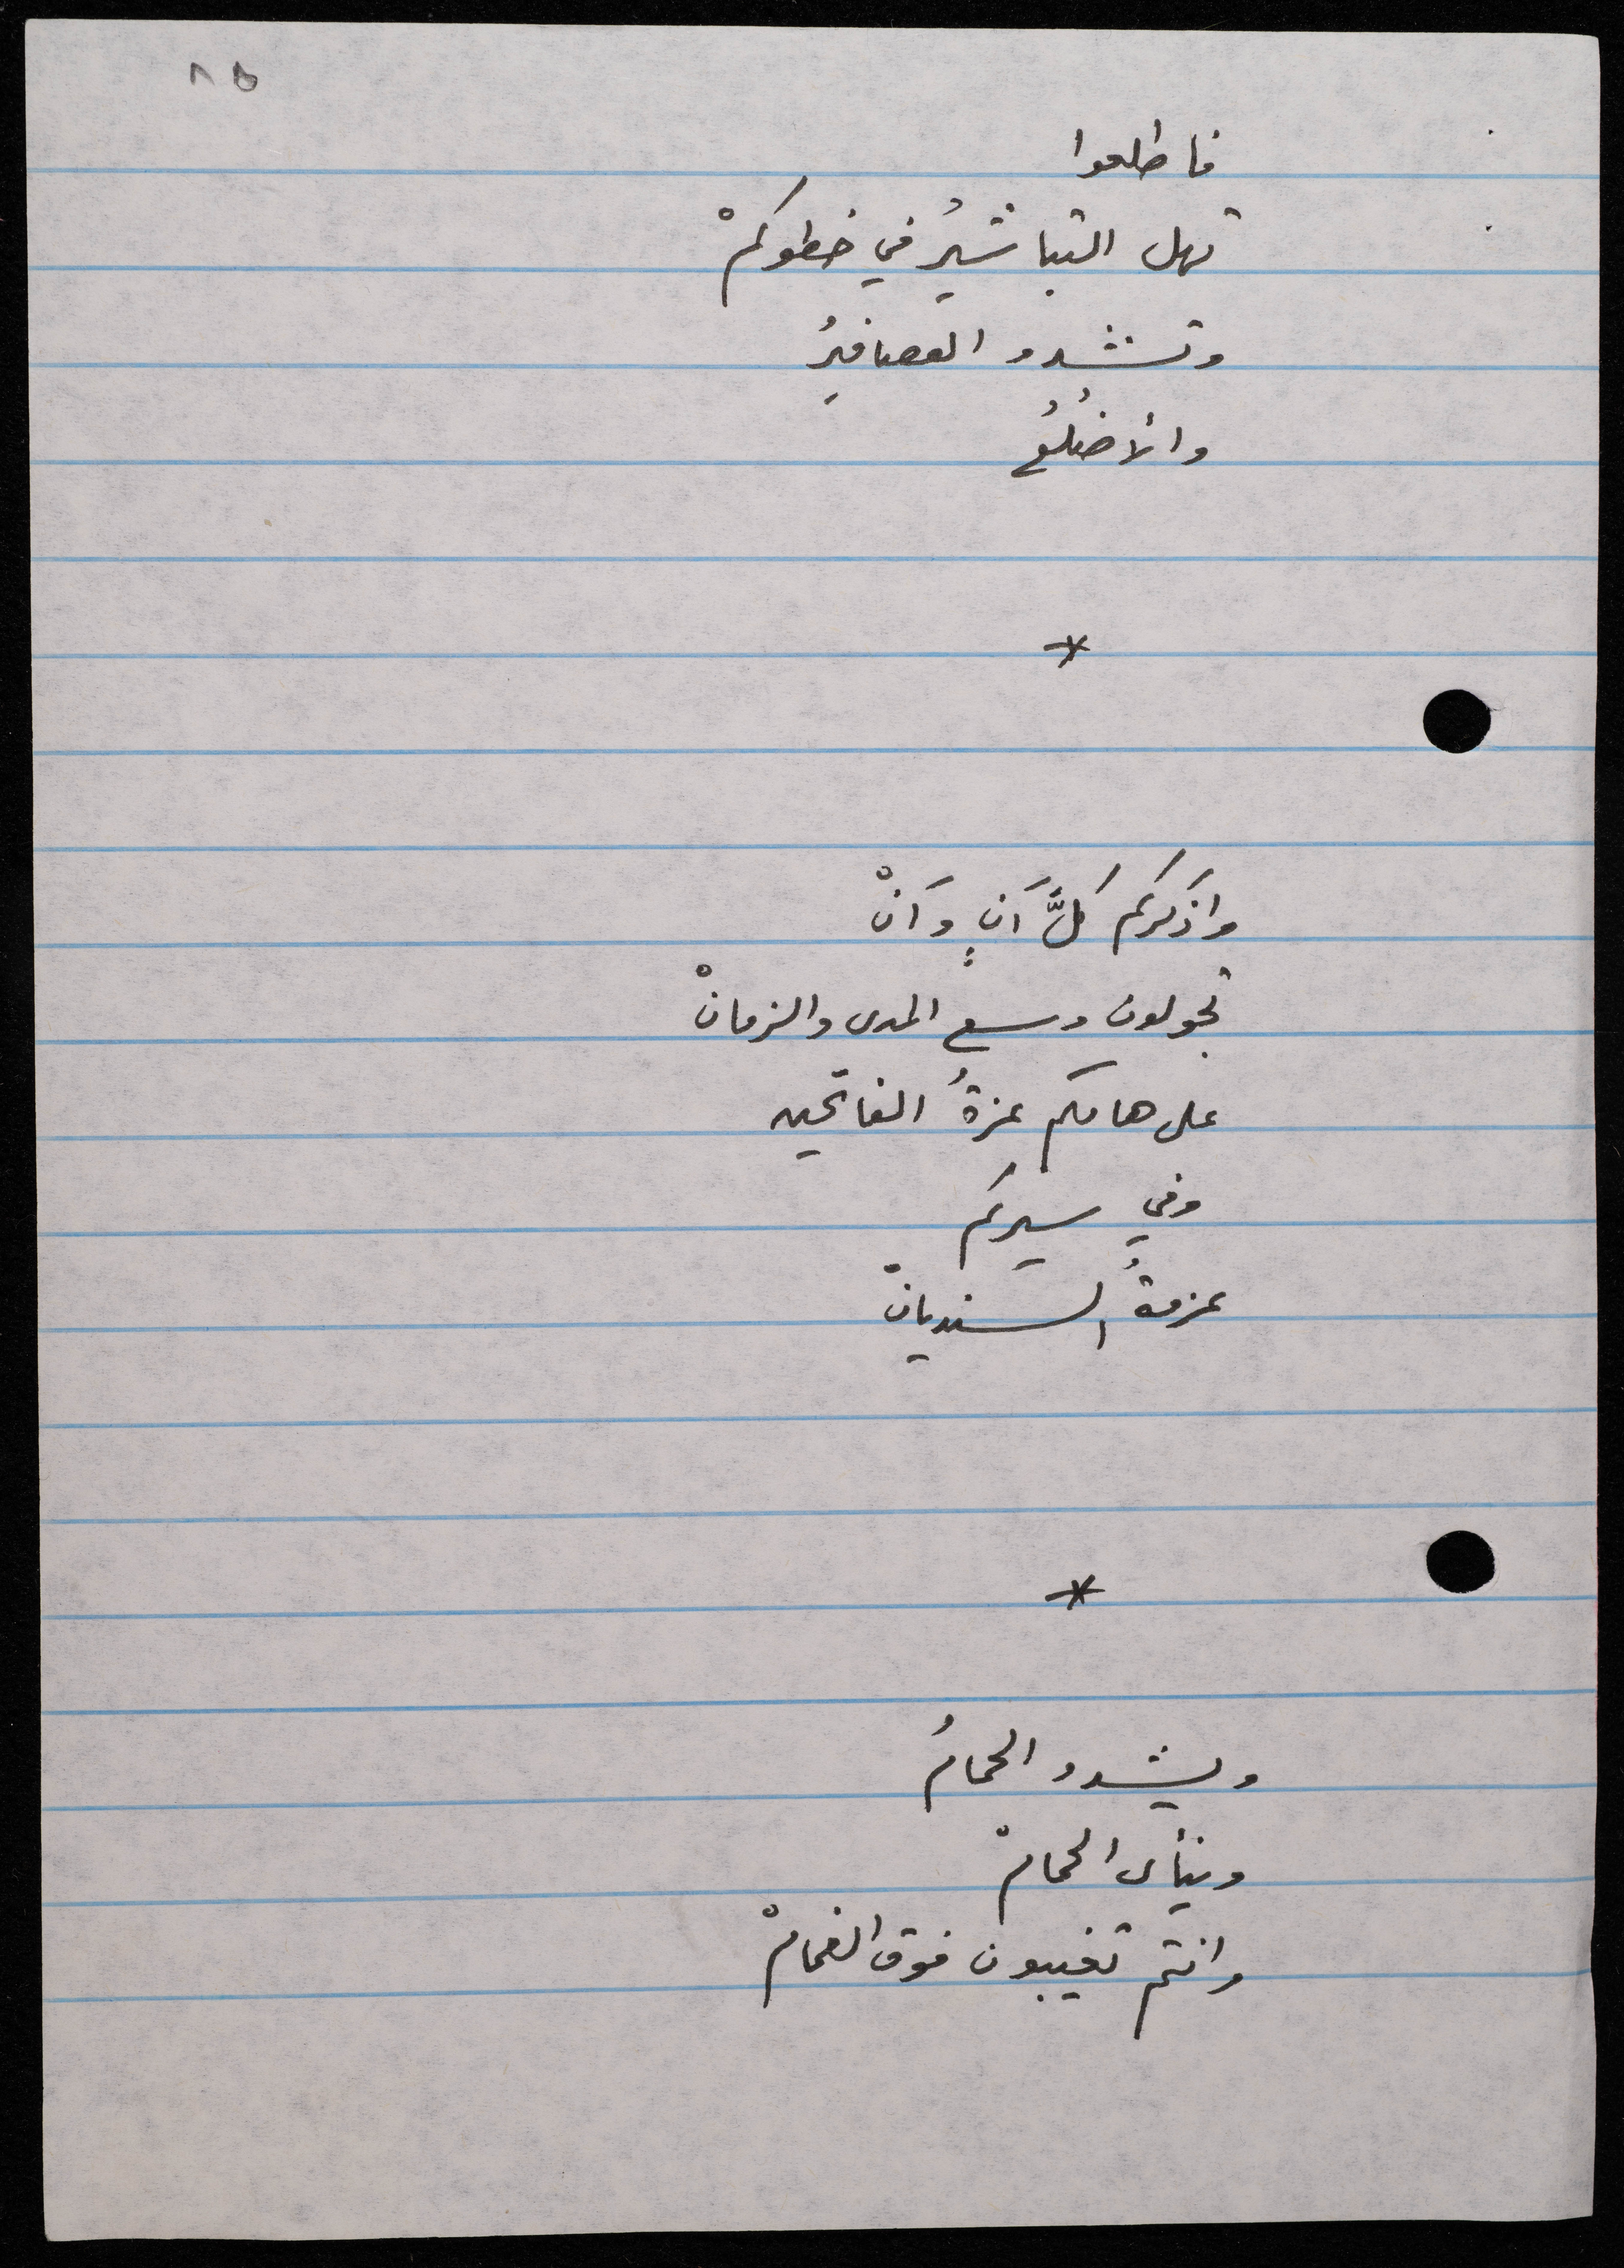 ٨٥
فاطلعوا
تهل التباشيرُ في خطوكمْ
وتشدو العصافيرُ
والأضلُعُ
*
واذكركم كلَّ آنٍ وآنْ
تجولون وسع المدى والزمانْ
على هامكم عزةُ الفاتحين
وفي سيركم
عزمةُ السنديانْ
*
ويشدو الحمامُ
وينأى الحمامْ
وانتم تغيبون فوق الغمامْ